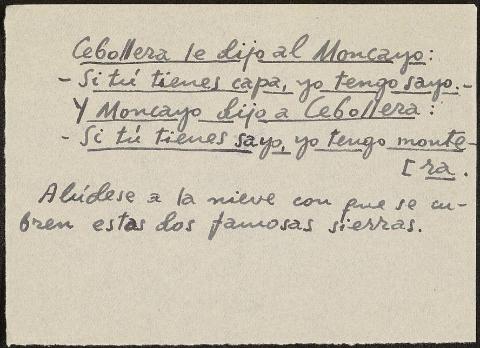 Cebollera le dijo al Moncayo:
- Si tú tienes capa, yo tengo sayo.-
Y Moncayo dijo a Cebollera:
- Si tú tienes sayo, yo tengo monte-
[ra.
Alúdese a la nieve con que se cu-
bren estas dos famosas sierras.